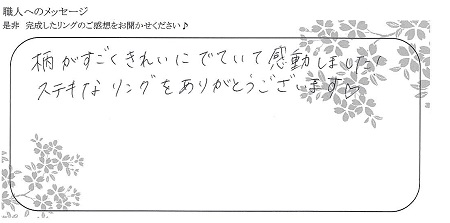 職人へのメッセージ
是非 完成したリングのご感想をお聞かせください♪
柄がすごくきれいにでていて感動しました!
ステキなリングをありがとうございます♡